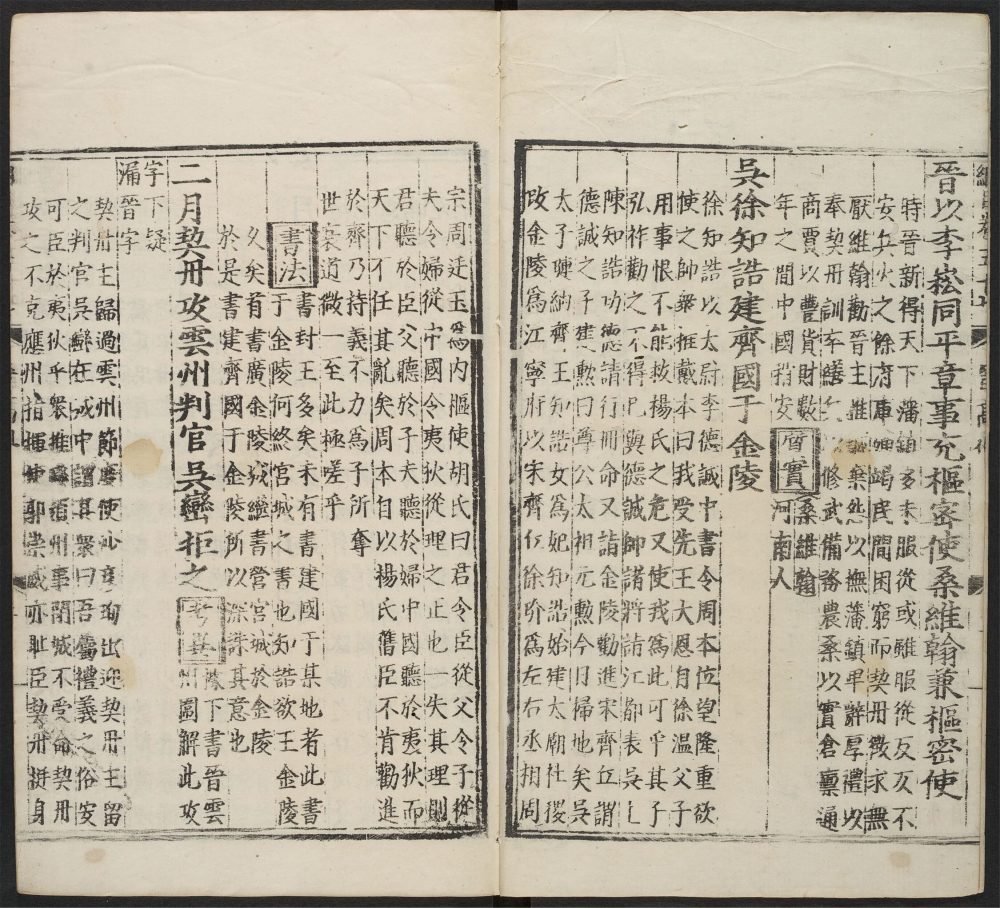 晉以李崧同平章事充樞密使桑維翰兼樞密使
時晉新得天下藩鎮多未服從或雖服從反仄不
安兵火之餘府庫殫竭民間困窮而契丹徵求無
厭維翰勸晉主推誠棄怨以撫藩鎮卑辭厚禮以
奉契丹訓卒繕兵以修武備務農桑以實倉廩通
商賈以豐貨財數
年之間中國稍安
質實
桑維翰
河南人
吳徐知誥建齊國于金陵
徐知誥以太尉李德誠中書令周本位望隆重欲
使之帥衆推戴本曰我受先王大恩自徐温父子
用事恨不能救楊氏之危又使我為此可乎其子
弘祚勸之不得已與德誠帥諸將詣江都表吳主
陳知誥功德請行冊命又詣金陵勸進宋齊丘謂
德誠之子建勳曰尊公太祖元勳今日掃地矣吳
太子璉納齊王知誥女為妃知誥始建太廟社稷
改金陵為江寧府以宋齊丘徐玠為左右丞相周
宗周廷玉為内樞使胡氏曰君令臣從父令子從
夫令婦從中國令夷狄從理之正也一失其理則
君聽於臣父聽於子夫聽於婦中國聽於夷狄而
天下不任其亂矣周本自以楊氏舊臣不肯勸進
於齊乃持義不力為子所奪
世衰道微一至此極嗟乎
書法
書封王多矣未有書建國于某地者此書
于金陵何終宮城之書也知誥欲王金陵
久矣前書廣金陵城繼書營宮城於金陵
於是書建齊國于金陵所以深誅其意也
二月契丹攻雲州判官吳巒拒之
考異
據下書晉雲
州圍解此攻
字下疑
漏晉字
契丹主歸過雲州節度使沙彥珣出迎契丹主留
之判官吳巒在城中謂其衆曰吾屬禮義之俗安
可臣於夷狄乎衆推巒領州事閉城不受命契丹
攻之不克應州指揮使郭崇威亦恥臣契丹挺身